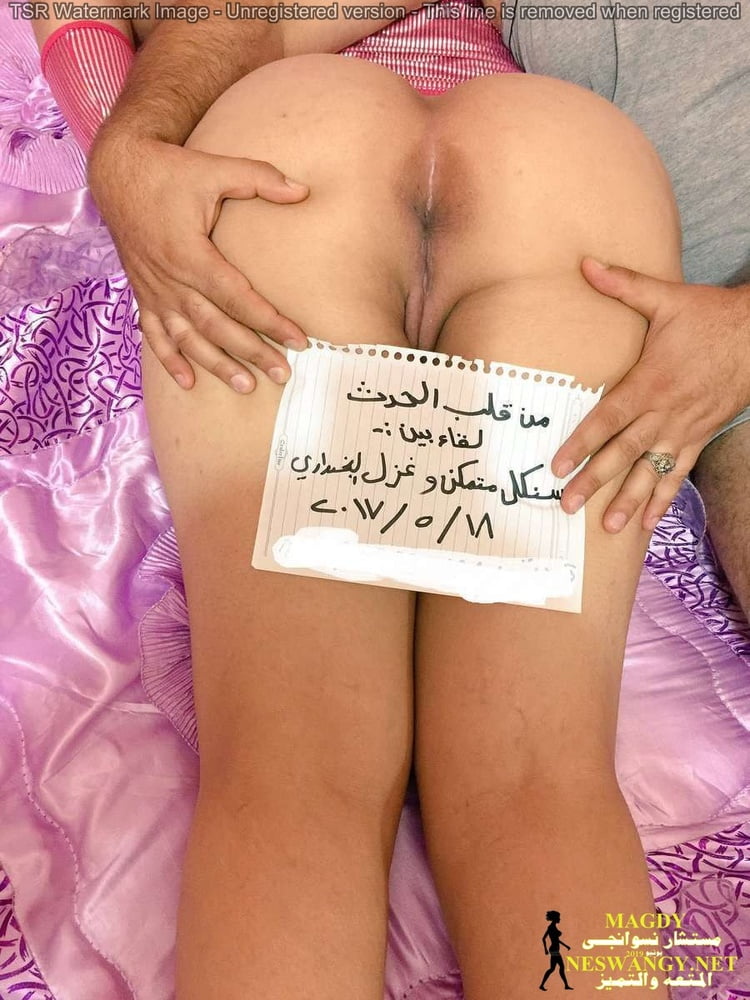 TSR Watermark Image - Unregistered version - This line is removed when registered
من قلب الحدث
لقاء بين :-
سنكل متمكن و غزل
٢٠١٧/٥/١٨
MAGDY
مستشار نسوانجى
يونيو 2019
NESWANGY.NET
المتعه والتميز